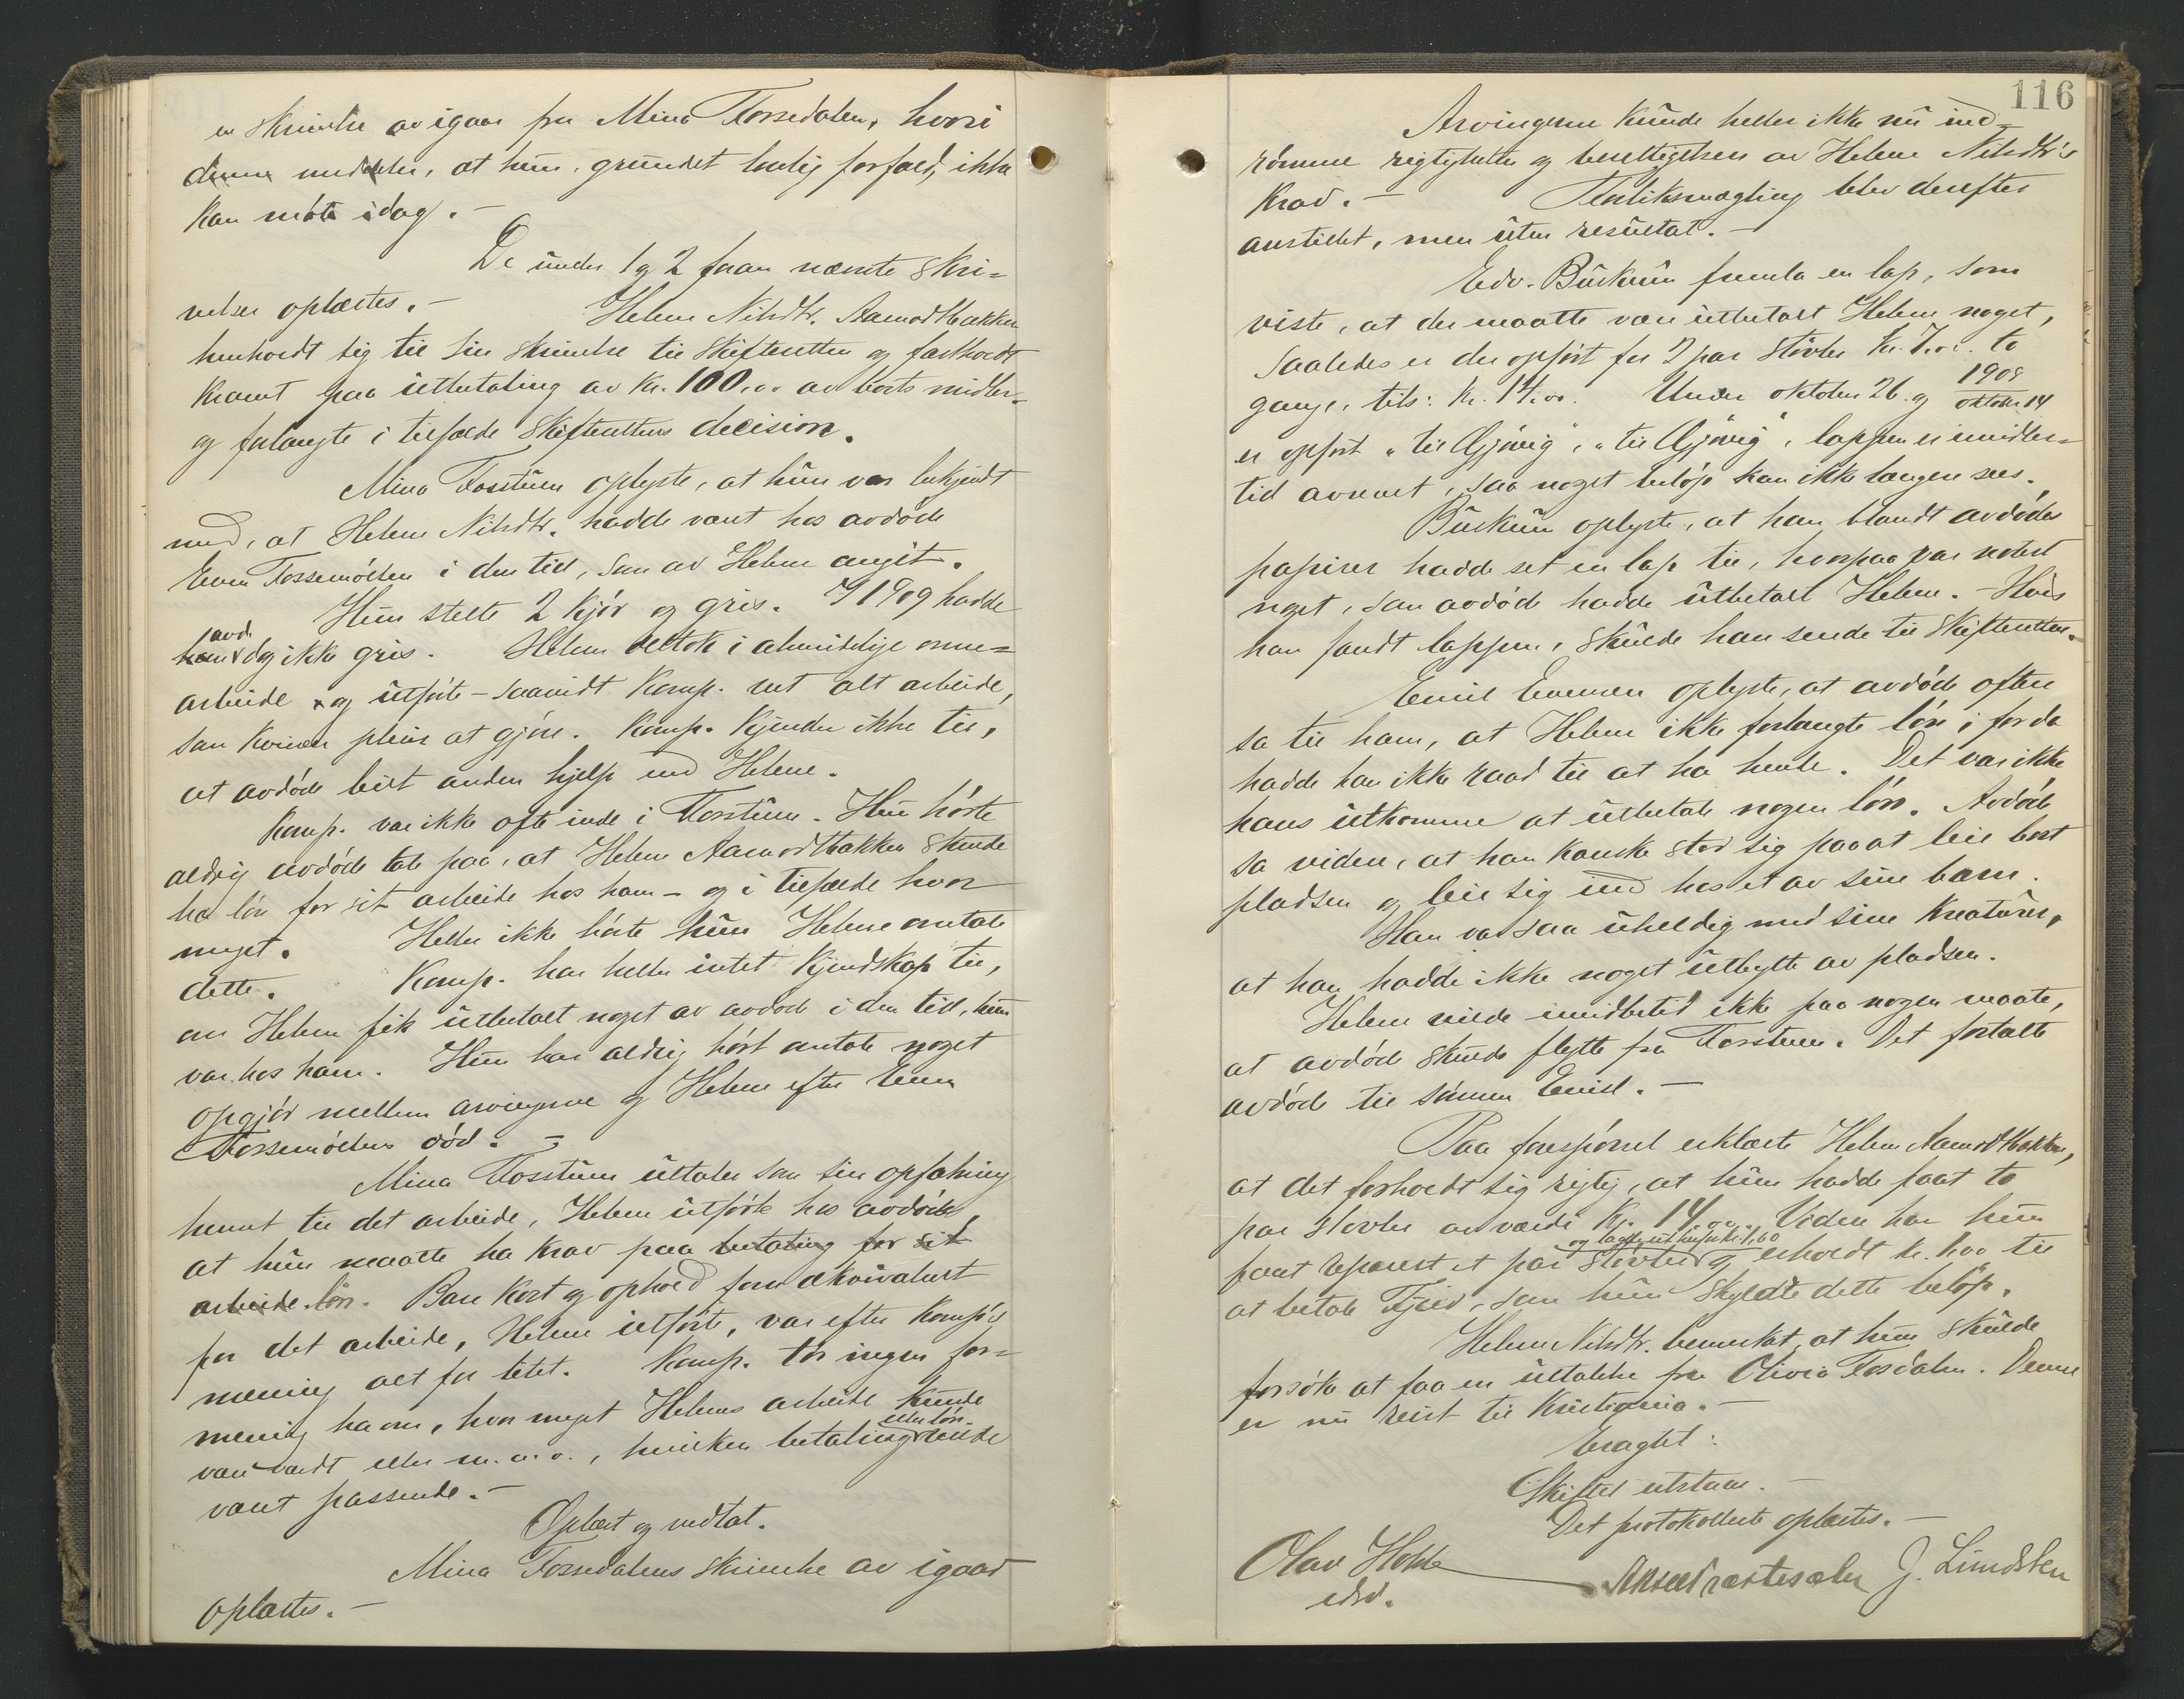 en skrivelse av igaar fra Mina Fossedalen, hvori
denne meddeler, at hun, grundet lovlig forfald, ikke
kan møte idag. -
De under 1 og 2 foran nævnte skri=
velser oplæstes. - Helene Nilsdtr. Aamodtbakken
henholdt sig til sin skrivelse til skifteretten og fastholdt
kravet paa utbetaling av kr. 100.00 av boets midler
og forlangte i tilfælde skifterettens decision.
Mina Fosstuen oplyste, at hun var bekjendt
med, at Helene Nilsdtr. hadde været hos avdøde
Even Fossemøllen i den tid, som av Helene angit.
Hun stelte 2 kjør og gris. I 1909 hadde
avd.
han dog ikke gris. Helene deltok i almindelige onne=
arbeide og utførte - saavidt komp. vet alt arbeide,
som kvinder pleier at gjøre. Komp. kjender ikke til,
at avdøde leiet anden hjelp end Helene.
Komp. var ikke ofte inde i Fosstuen. Hun hørte
aldrig avdøde tale paa, at Helene Aamodtbakken skulde
ha løn for sit arbeide hos ham - og i tilfælde hvor
meget. Heller ikke hørte hun Helene omtale
dette. Komp. har heller intet kjendskap til,
om Helene fik utbetalt noget av avdøde i den tid, hun
var hos ham. Hun har aldrig hørt omtale noget
opgjør mellem arvingerne og Helene efter Even
Fossemøllens død. -
Mina Fosstuen uttaler som sin opfatning
hennt til det arbeide, Helene utførte hos avdøde,
at hun maatte ha krav paa betaling for sit
arbeide løn. Bare kost og ophold som ækvivalent
for det arbeide, Helene utførte, var efter komp's
mening alt for litet. Komp. tør ingen for=
mening ha om, hvor meget Helenes arbeide kunde
eller løn
være værdt eller m. a. o., hvilken betaling vilde
været passende. -
Oplæst og vedtat.
Mina Fossedalens skrivelse av igaar
oplæstes. -
116
Arvingerne kunde heller ikke nu ind=
rømme rigtigheten og berettigelsen av Helene Nilsdtr's
krav. - Forliksmægling blev derefter
anstillet, men uten resultat. -
Edv. Burkum fremla en lap, som
viste, at der maatte være utbetalt Helene noget,
saaledes er der opført for 2 par støvler kr. 7.00 to
gange, tils: kr. 14.00. Under oktober 26. og 1908
oktober 14
er opført "til Gjøvig", "til Gjøvig", lappen er imidler=
tid avrevet, saa noget beløp kan ikke længer sees.
Burkum oplyste, at han blandt avdødes
papirer hadde set en lap til, hvorpaa var notert
noget, som avdøde hadde utbetalt Helene. - Hvis
han fandt lappen, skulde han sende til skifteretten.
Emil Evensen oplyste, at avdøde ofte
sa til ham, at Helene ikke forlangte løn; for da
hadde han ikke raad til at ha hende. Det var ikke
hans utkomme at utbetale nogen løn. Avdøde
sa videre, at han kanske stod sig paa at leie bort
pladsen og leie sig ind hos et av sine barn.
Han var saa uheldig med sine kreaturer,
at han hadde ikke noget utbytte av pladsen.
Helene vilde imidlertid ikke paa nogen maate,
at avdøde skulde flytte fra Fosstuen. Det fortalte
avdøde til sønnen Emil. -
Paa forespørsel erklærte Helene Aamodtbakken,
at det forholdt sig rigtig, at hun hadde faat to
par støvler av værdi Kr. 14.00. Videre har hun
og lagt ut kr. 1,60
faat reparert et par støvler og erholdt kr. til
at betale, som hun skyldte dette beløp.
Helene Nilsdtr. bemerket, at hun skulde
forsøke at faa en uttalelse fra Olivia Fosdalen. Denne
er nu reist til Kristiania. -
Eragtet:
Skiftet utstaar. -
Det protokollerte oplæstes. -
Olav Holde
edsv.
J. Lundsten